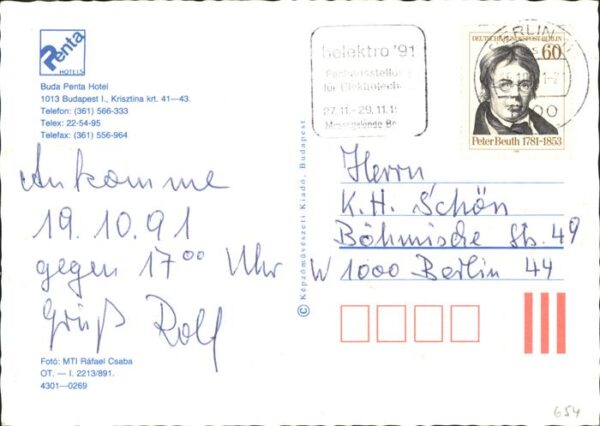 Penta
HOTELS
Buda Penta Hotel
1013 Budapest I., Krisztina krt. 41—43.
Telefon: (361) 566-333
Telex: 22-54-95
Telefax: (361) 556-964
Ankomme
19.10.91
gegen 17⁰⁰ Uhr
Gruß Rolf
Fotó: MTI Ráfael Csaba
OT. — I. 2213/891.
4301—0269
© Képzőművészeti Kiadó, Budapest
belektro '91
Fachausstellung
für Elektrotechn
27.11.-29.11.19
Messegelände Be
BERLIN
DEUTSCHE BUNDESPOST BERLIN
60
Peter Beuth 1781-1853
Herrn
K.H. Schön
Böhmische Str. 49
W 1000 Berlin 44
654